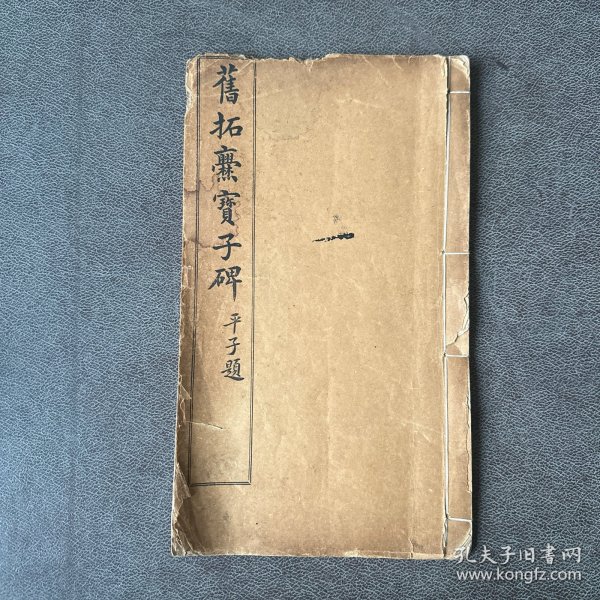 舊拓爨寶子碑
平子題
孔夫子旧書网
www.kongfz.com